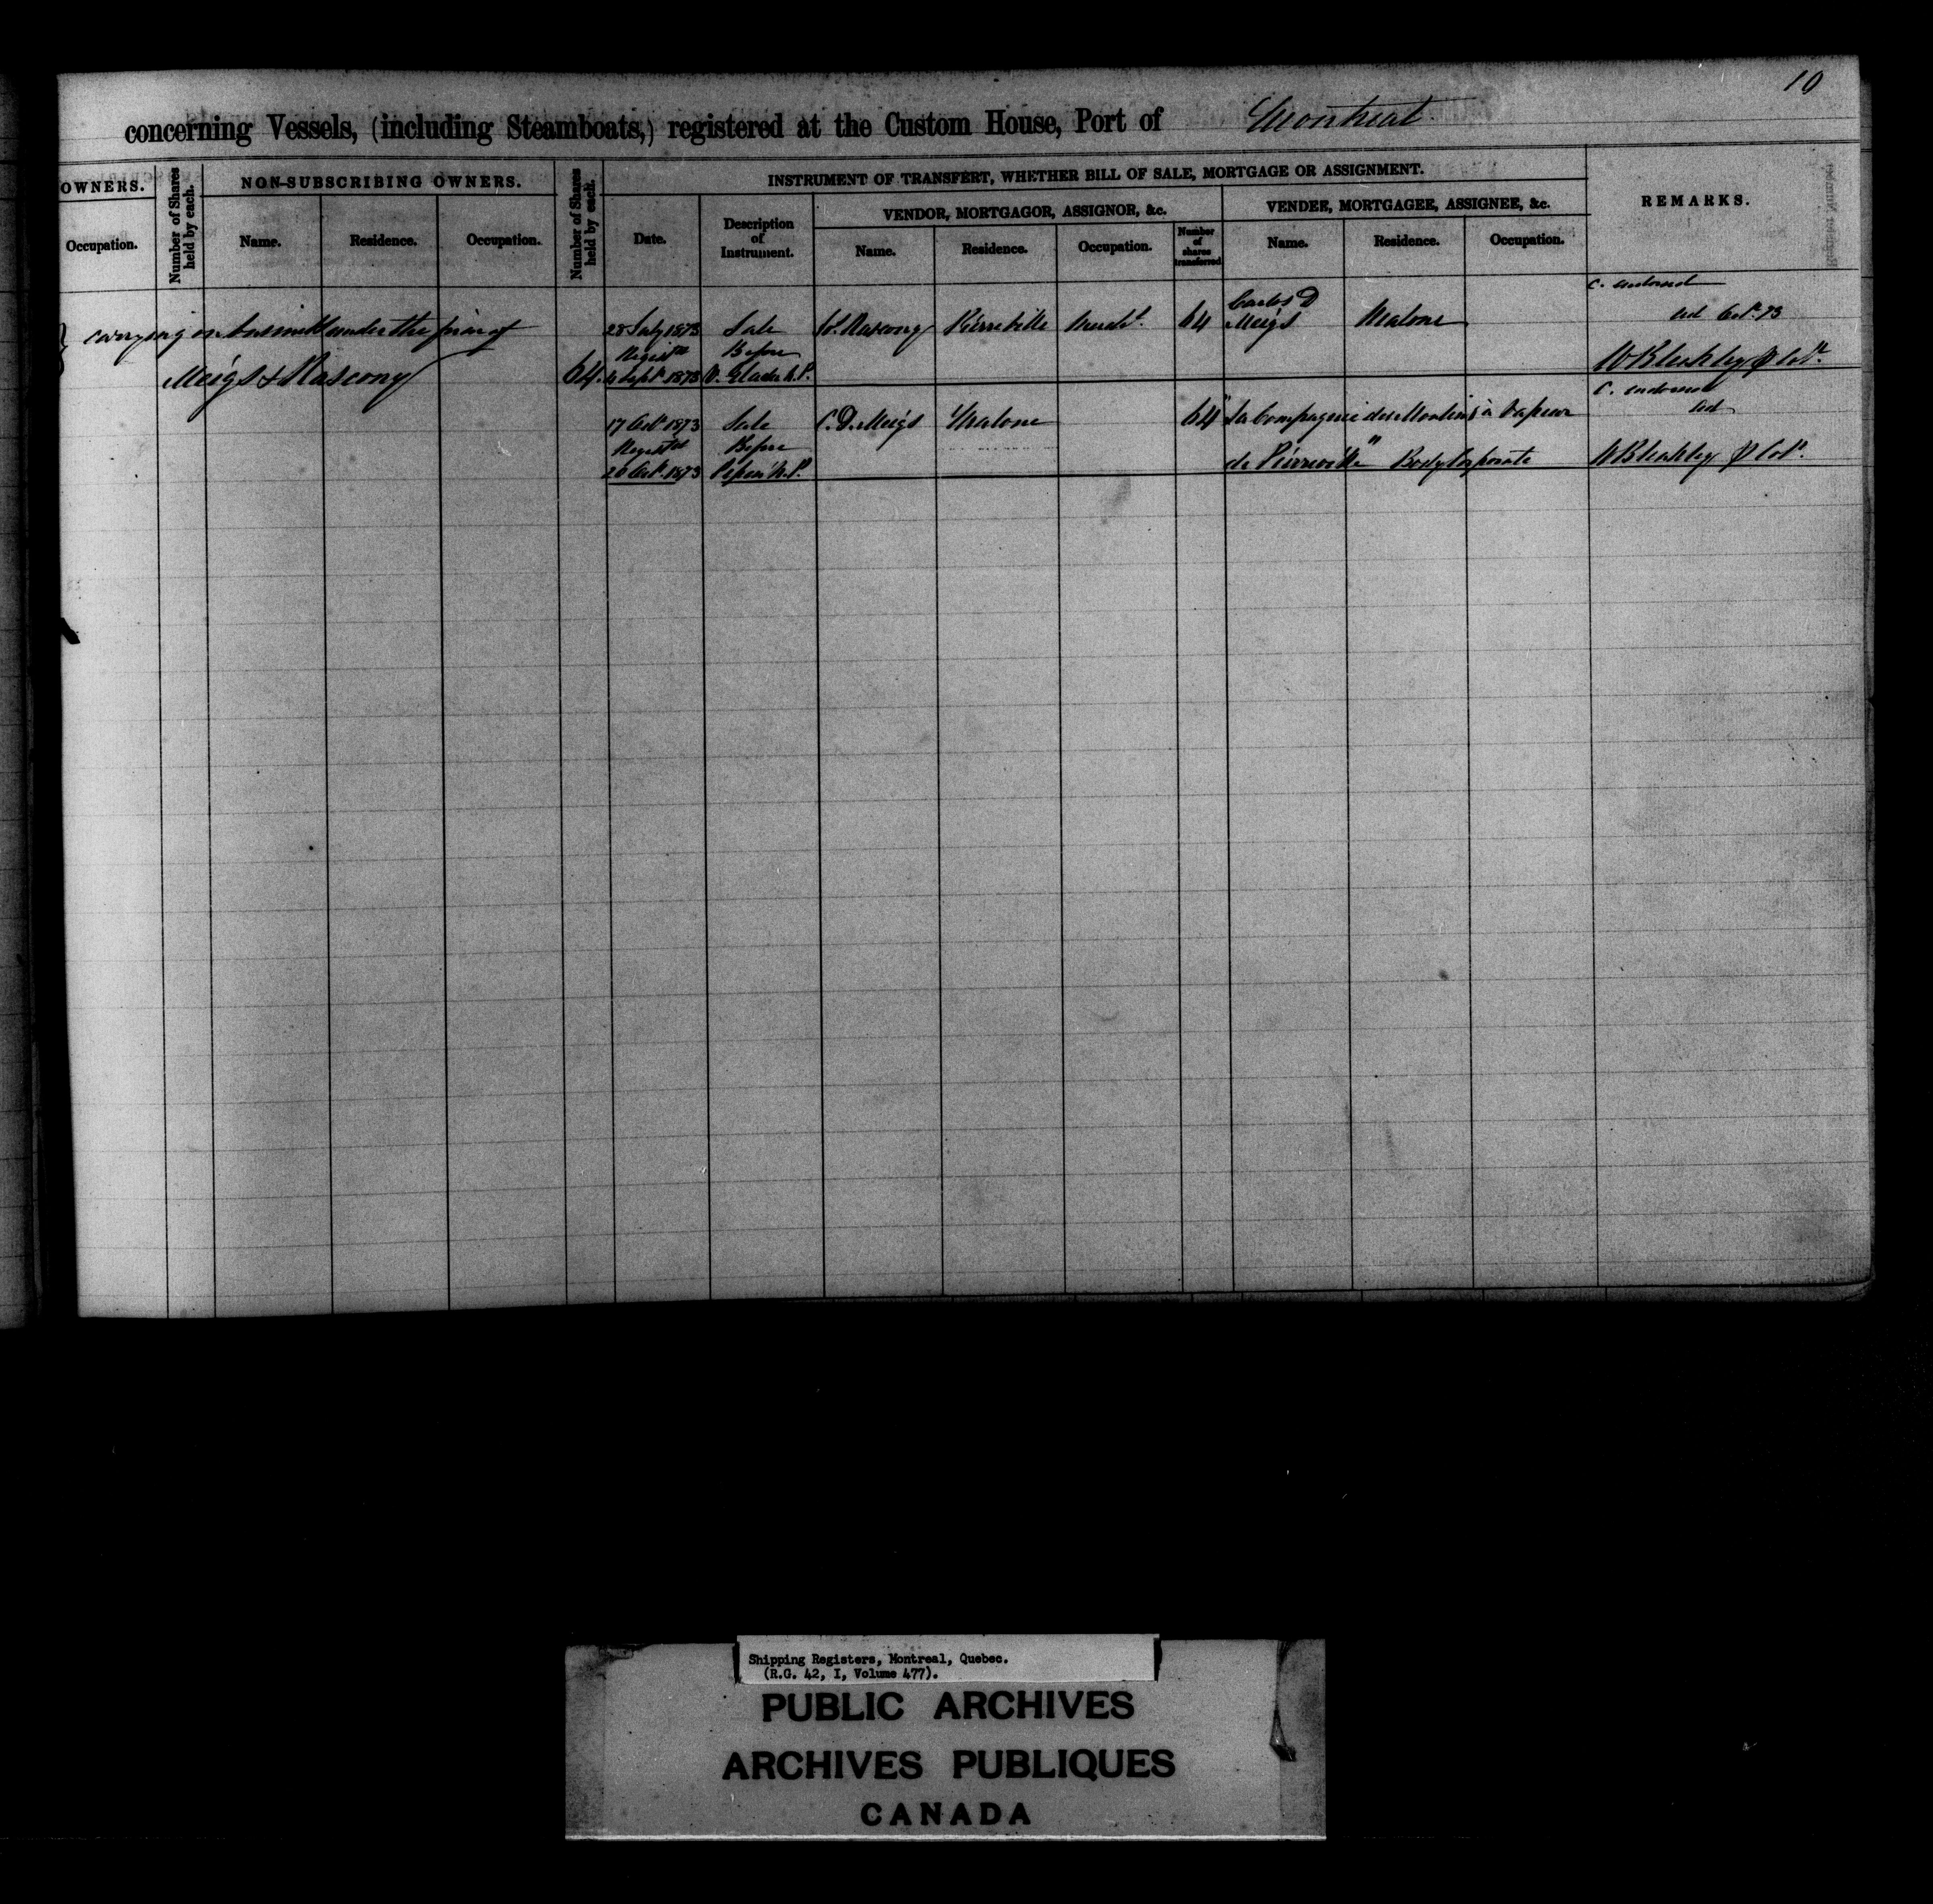 10
concerning Vessels, (including Steamboats,) registered at the Custom House, Port of Montreal
OWNERS.
Occupation.
Number of Shares held by each.
NON-SUBSCRIBING OWNERS.
Name.
Residence.
Occupation.
Number of Shares held by each.
INSTRUMENT OF TRANSFERT, WHETHER BILL OF SALE, MORTGAGE OR ASSIGNMENT.
Date.
Description of Instrument.
VENDOR, MORTGAGOR, ASSIGNOR, &c.
Name.
Residence.
Occupation.
Number of shares transferred
VENDEE, MORTGAGEE, ASSIGNEE, &c.
Name.
Residence.
Occupation.
REMARKS.
carrying on business under the firm of
Meigs & Mascony 64.
28 July 1873 Sale Mascony Pierreville Mercht. 64 Carlos D Meigs Malone
Registd Before
4 Sept. 1873 N.P.
C. endorsed
Oct. 73
W Bleakley p Colr.
17 Oct 1873 Sale C. D. Meigs Malone 64 "La Compagnie des Moulins à Vapeur
Registd Before
de Pierreville" Body Corporate
20 Oct. 1873 Pepin N.P.
C. endorsed
W Bleakley p Colr.
Shipping Registers, Montreal, Quebec.
(R.G. 42, I, Volume 477).
PUBLIC ARCHIVES
ARCHIVES PUBLIQUES
CANADA